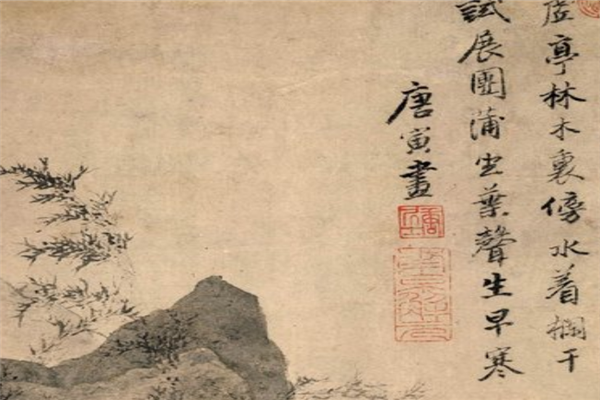 虗亭林木裏傍水着欄干
試展團蒲坐葉聲生早寒
唐寅畫